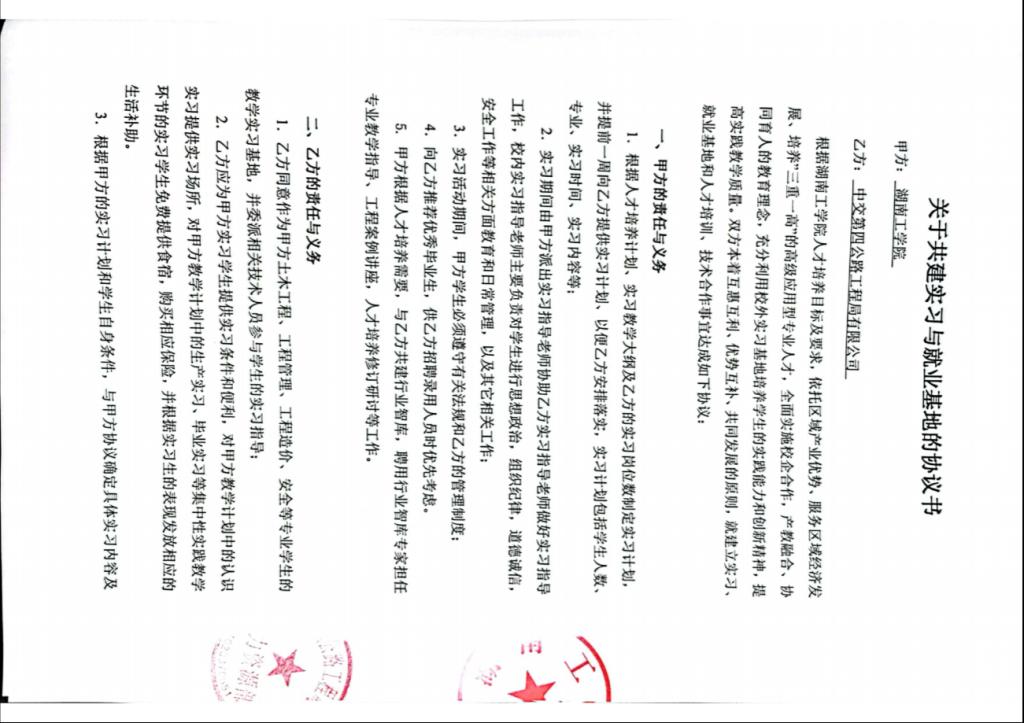 关于共建实习与就业基地的协议书
甲方：湖南工学院
乙方：中交第四公路工程局有限公司
根据湖南工学院人才培养目标及要求，依托区域产业优势、服务区域经济发
展、培养“三重一高”的高级应用型专业人才，全面实施校企合作，产教融合、协
同育人的教育理念，充分利用校外实习基地培养学生的实践能力和创新精神，提
高实践教学质量。双方本着互惠互利、优势互补、共同发展的原则，就建立实习、
就业基地和人才培训、技术合作事宜达成如下协议：
一、甲方的责任与义务
1．根据人才培养计划、实习教学大纲及乙方的实习岗位数制定实习计划，
并提前一周向乙方提供实习计划、以便乙方安排落实，实习计划包括学生人数、
专业、实习时间、实习内容等；
2．实习期间由甲方派出实习指导老师协助乙方实习指导老师做好实习指导
工作，校内实习指导老师主要负责对学生进行思想政治，组织纪律，道德诚信，
安全工作等相关方面教育和日常管理，以及其它相关工作；
3．实习活动期间，甲方学生必须遵守有关法规和乙方的管理制度；
4．向乙方推荐优秀毕业生，供乙方招聘录用人员时优先考虑。
5．甲方根据人才培养需要，与乙方共建行业智库，聘用行业智库专家担任
专业教学指导、工程案例讲座、人才培养修订研讨等工作。
二、乙方的责任与义务
1．乙方同意作为甲方土木工程、工程管理、工程造价、安全等专业学生的
教学实习基地，并委派相关技术人员参与学生的实习指导；
2．乙方应为甲方实习学生提供实习条件和便利，对甲方教学计划中的认识
实习提供实习场所，对甲方教学计划中的生产实习、毕业实习等集中性实践教学
环节的实习学生免费提供食宿，购买相应保险，并根据实习生的表现发放相应的
生活补助。
3．根据甲方的实习计划和学生自身条件，与甲方协议确定具体实习内容及
工
公路工程
力资源部